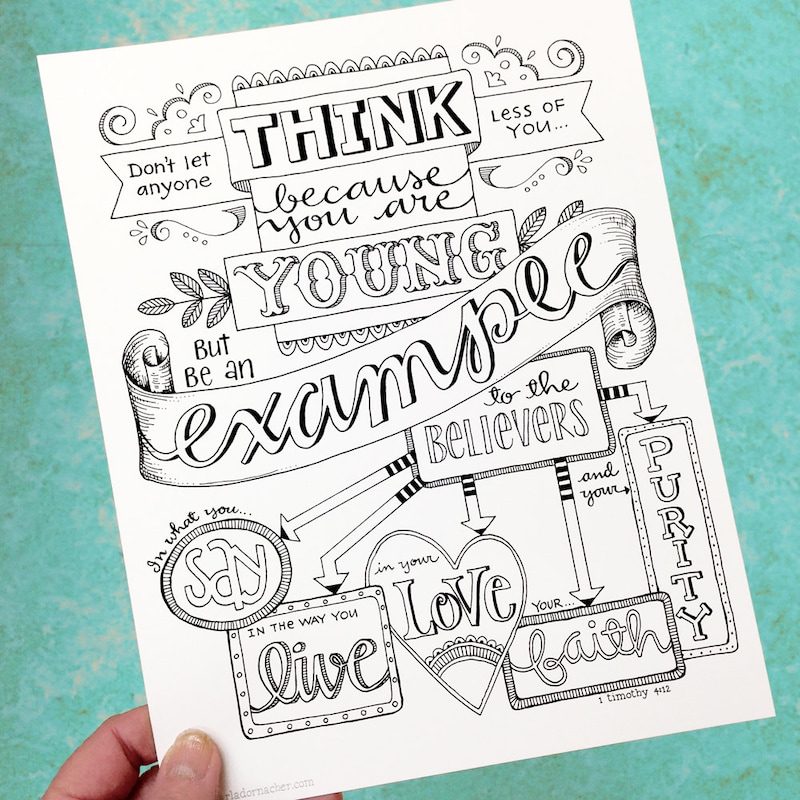 Don't let
anyone
THINK
Less of
you...
because
you are
YOUNG
But
Be an
example
to the
BELIEVERS
In what you...
say
IN THE WAY YOU
live
in your
LOVE
YOUR...
faith
and
your
PURITY
1 timothy 4:12
rladornacher.com